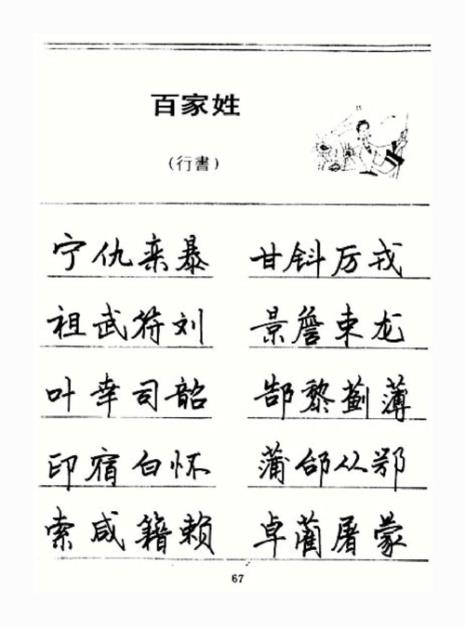 百家姓
(行書)
宁仇栾暴 甘钭厉戎
祖武符刘 景詹束龙
叶幸司韶 郜黎蓟薄
印宿白怀 蒲邰从鄂
索咸籍赖 卓蔺屠蒙
67